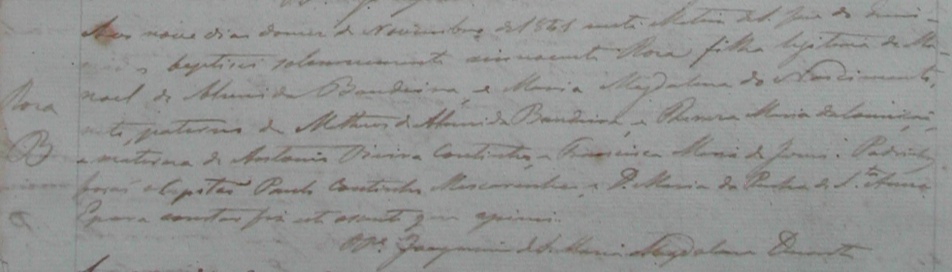 Aos nove dias do mez de Novembro de 1861 nesta Matriz de S. Jose do
baptisei solemnemente a innocente Rosa filha legitima de Ma
noel de Almeida Bandeira, e Maria Magdalena do Nascimento,
Rosa
neta paterna de Matheus de Almeida Bandeira, e Maria da Conceição
B
e materna de Antonio Vieira Coutinho, e Francisca Maria de Jesus. Padrinhos
forão o Capitão Paulo Coutinho Mascarenhas e D. Maria da Penha de S. Anna
E para constar fiz este assento que assinei.
Joaquim de S. Maria Magdalena Duarte